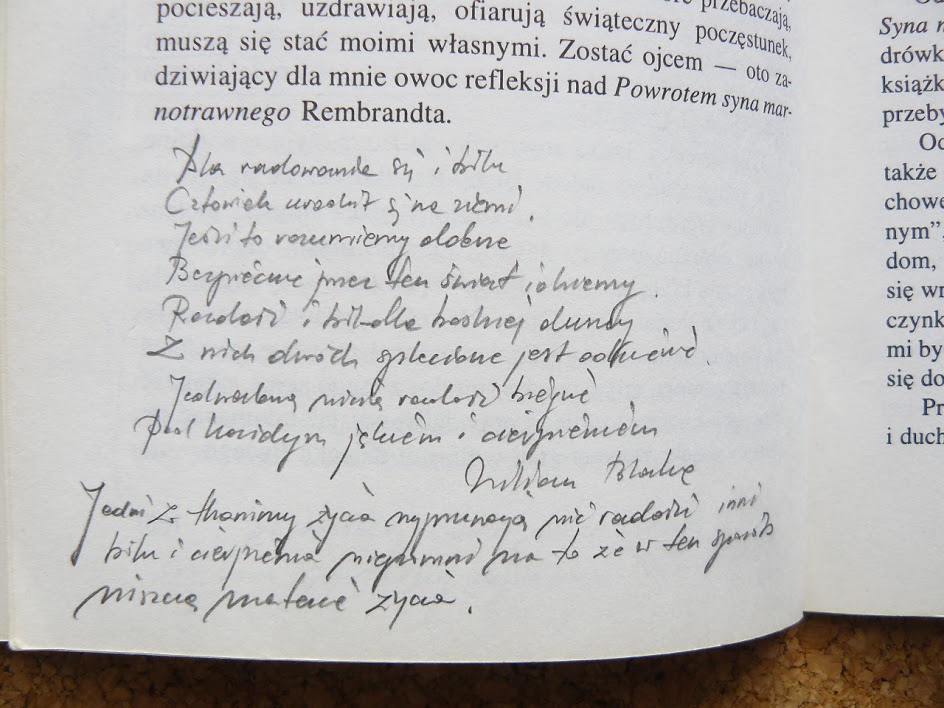 przebaczają,
pocieszają, uzdrawiają, ofiarują świąteczny poczęstunek,
muszą się stać moimi własnymi. Zostać ojcem — oto za-
dziwiający dla mnie owoc refleksji nad Powrotem syna mar-
notrawnego Rembrandta.
Dla radowania się i bólu
Człowiek urodził się na ziemi.
Jeśli to rozumiemy dobrze
Bezpiecznie przez ten świat idziemy.
Radość i ból dla boskiej duszy
Z nich dwóch splecione jest odzienie.
Jedwabną nicią radość biegnie
Pod każdym jękiem i cierpieniem
William Blake
Jedni z tkaniny życia wypruwają nić radości inni
bólu i cierpienia niepomni na to że w ten sposób
niszczą materię życia.
Syna
drówk
książk
przeby
Od
także
chowe
nym”,
dom,
się wr
czynk
mi by
się do
Pr
i duch